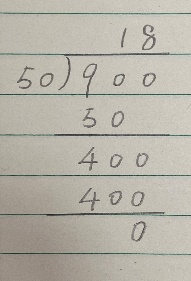 18
50)900
50
400
400
0